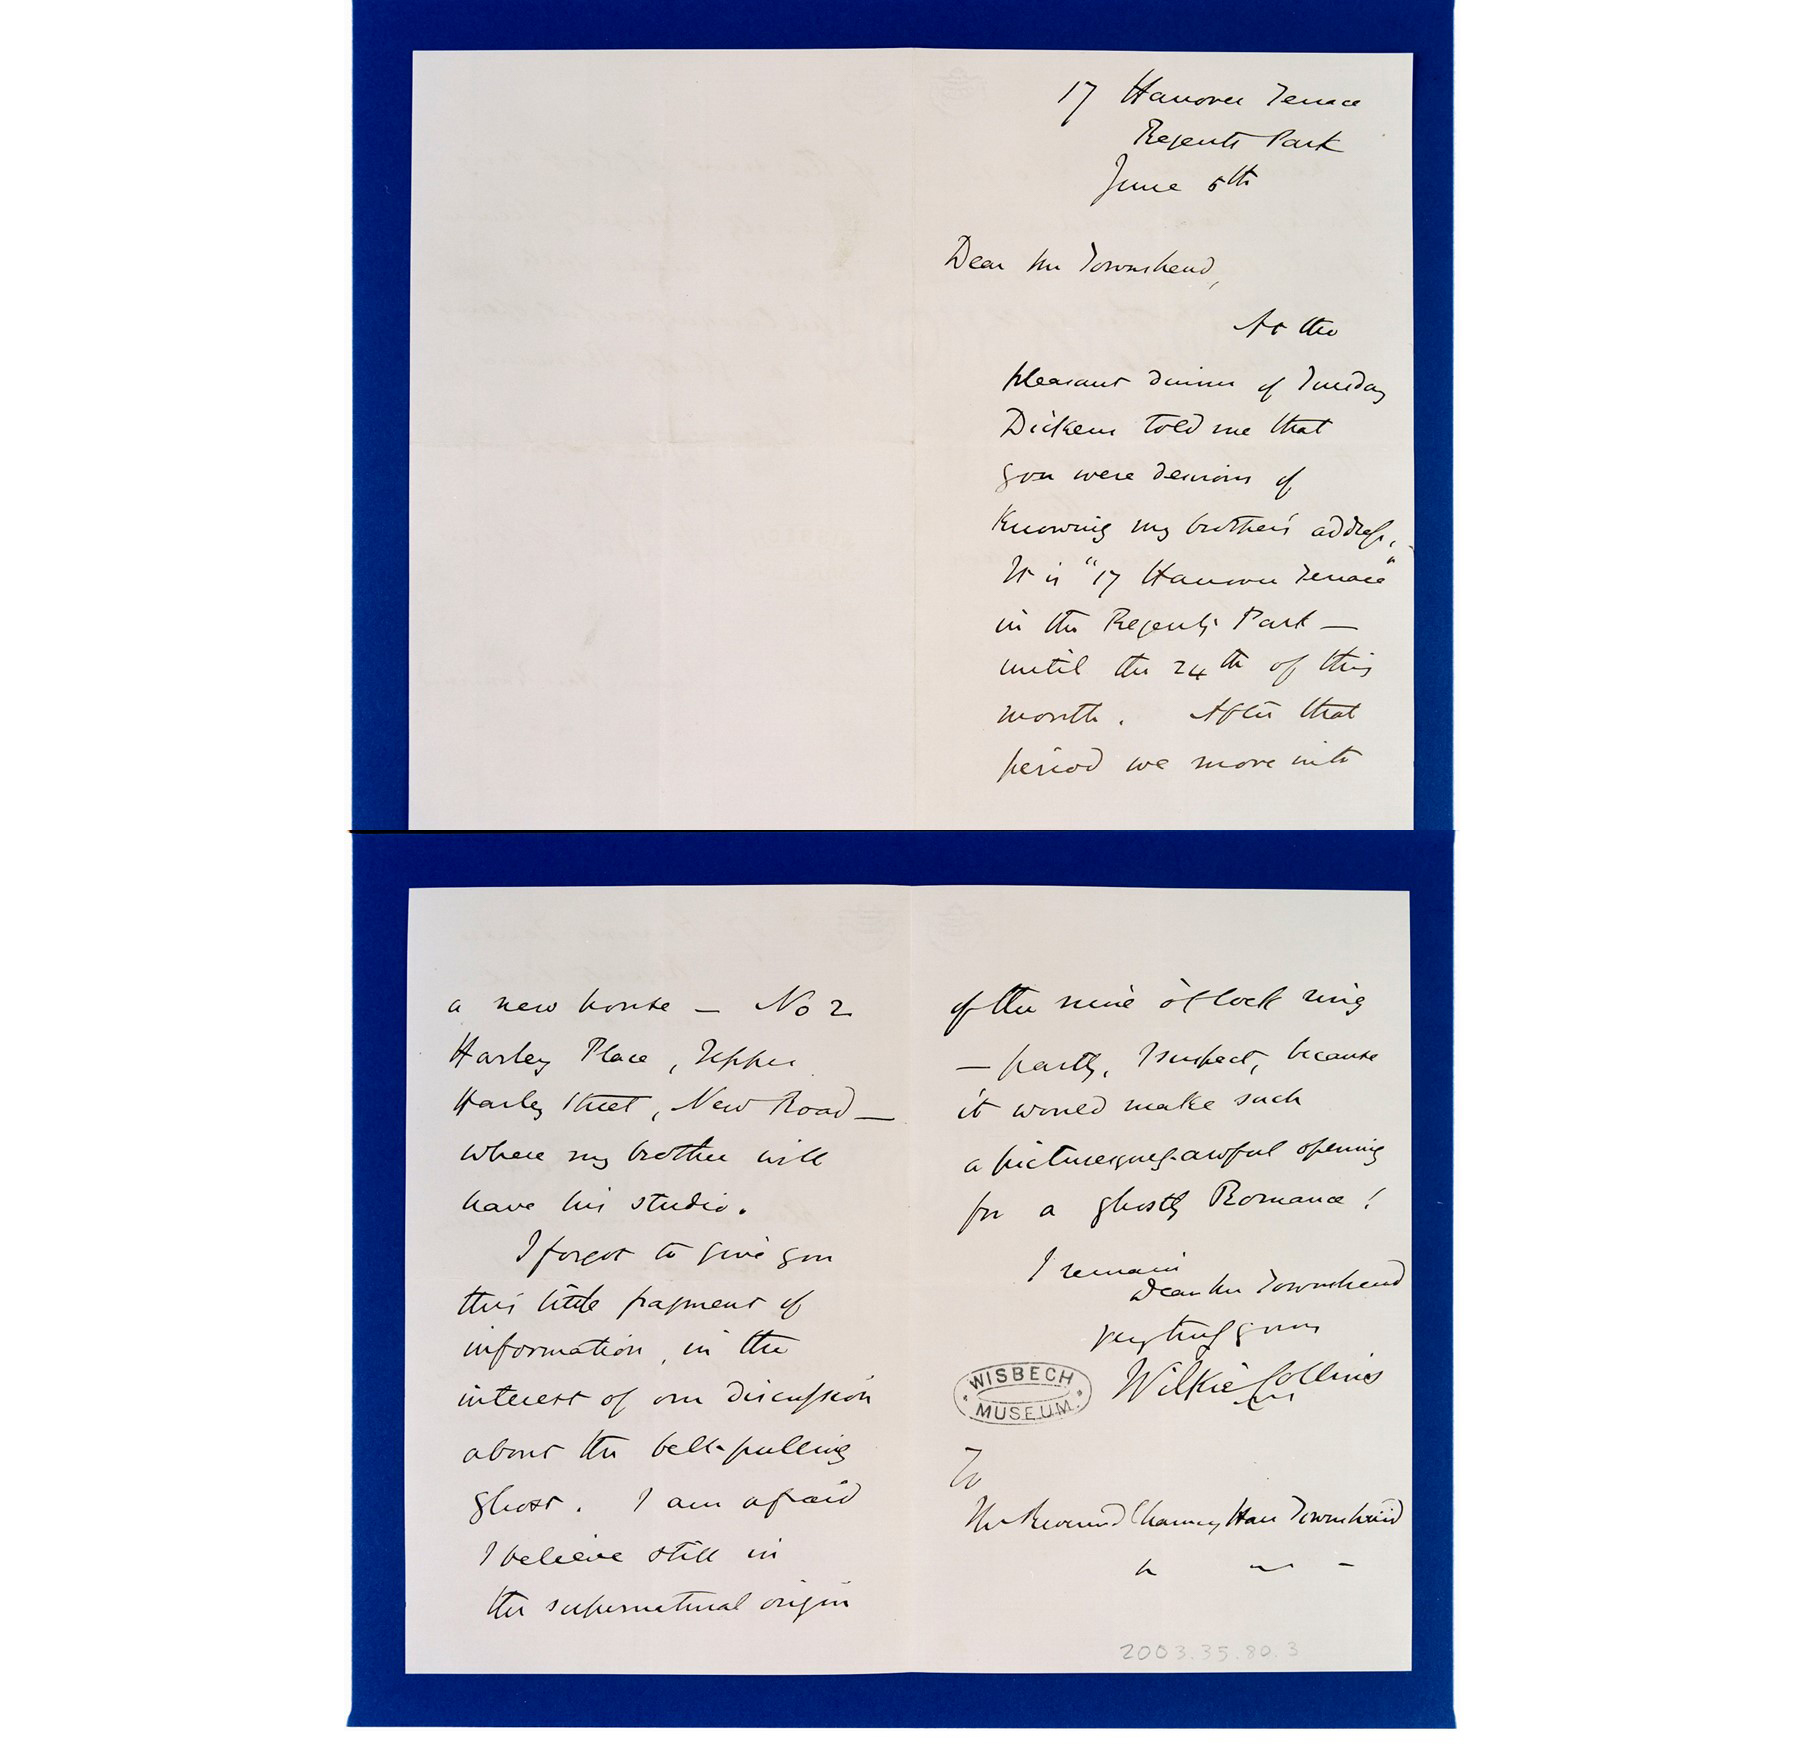 17 Hanover Terrace
Regents Park
June 5th
Dear Mr Townshend,
At the
pleasant dinner of Tuesday
Dickens told me that
you were desirous of
knowing my brother's address.
It is "17 Hanover Terrace"
in the Regents Park —
until the 24th of this
month. After that
period we move into
a new house — No 2
Harley Place, Upper
Harley Street, New Road —
where my brother will
have his studio.
I forgot to give you
this little fragment of
information, in the
interest of our discussion
about the bell-pulling
ghost. I am afraid
I believe still in
the supernatural origin
of the nine o'clock ring
— partly, I suspect, because
it would make such
a picturesquely-awful opening
for a ghostly Romance!
I remain
Dear Mr Townshend
very truly yours
Wilkie Collins
WISBECH
MUSEUM.
To
The Reverend Chauncy Hare Townshend
2003.35.80.3